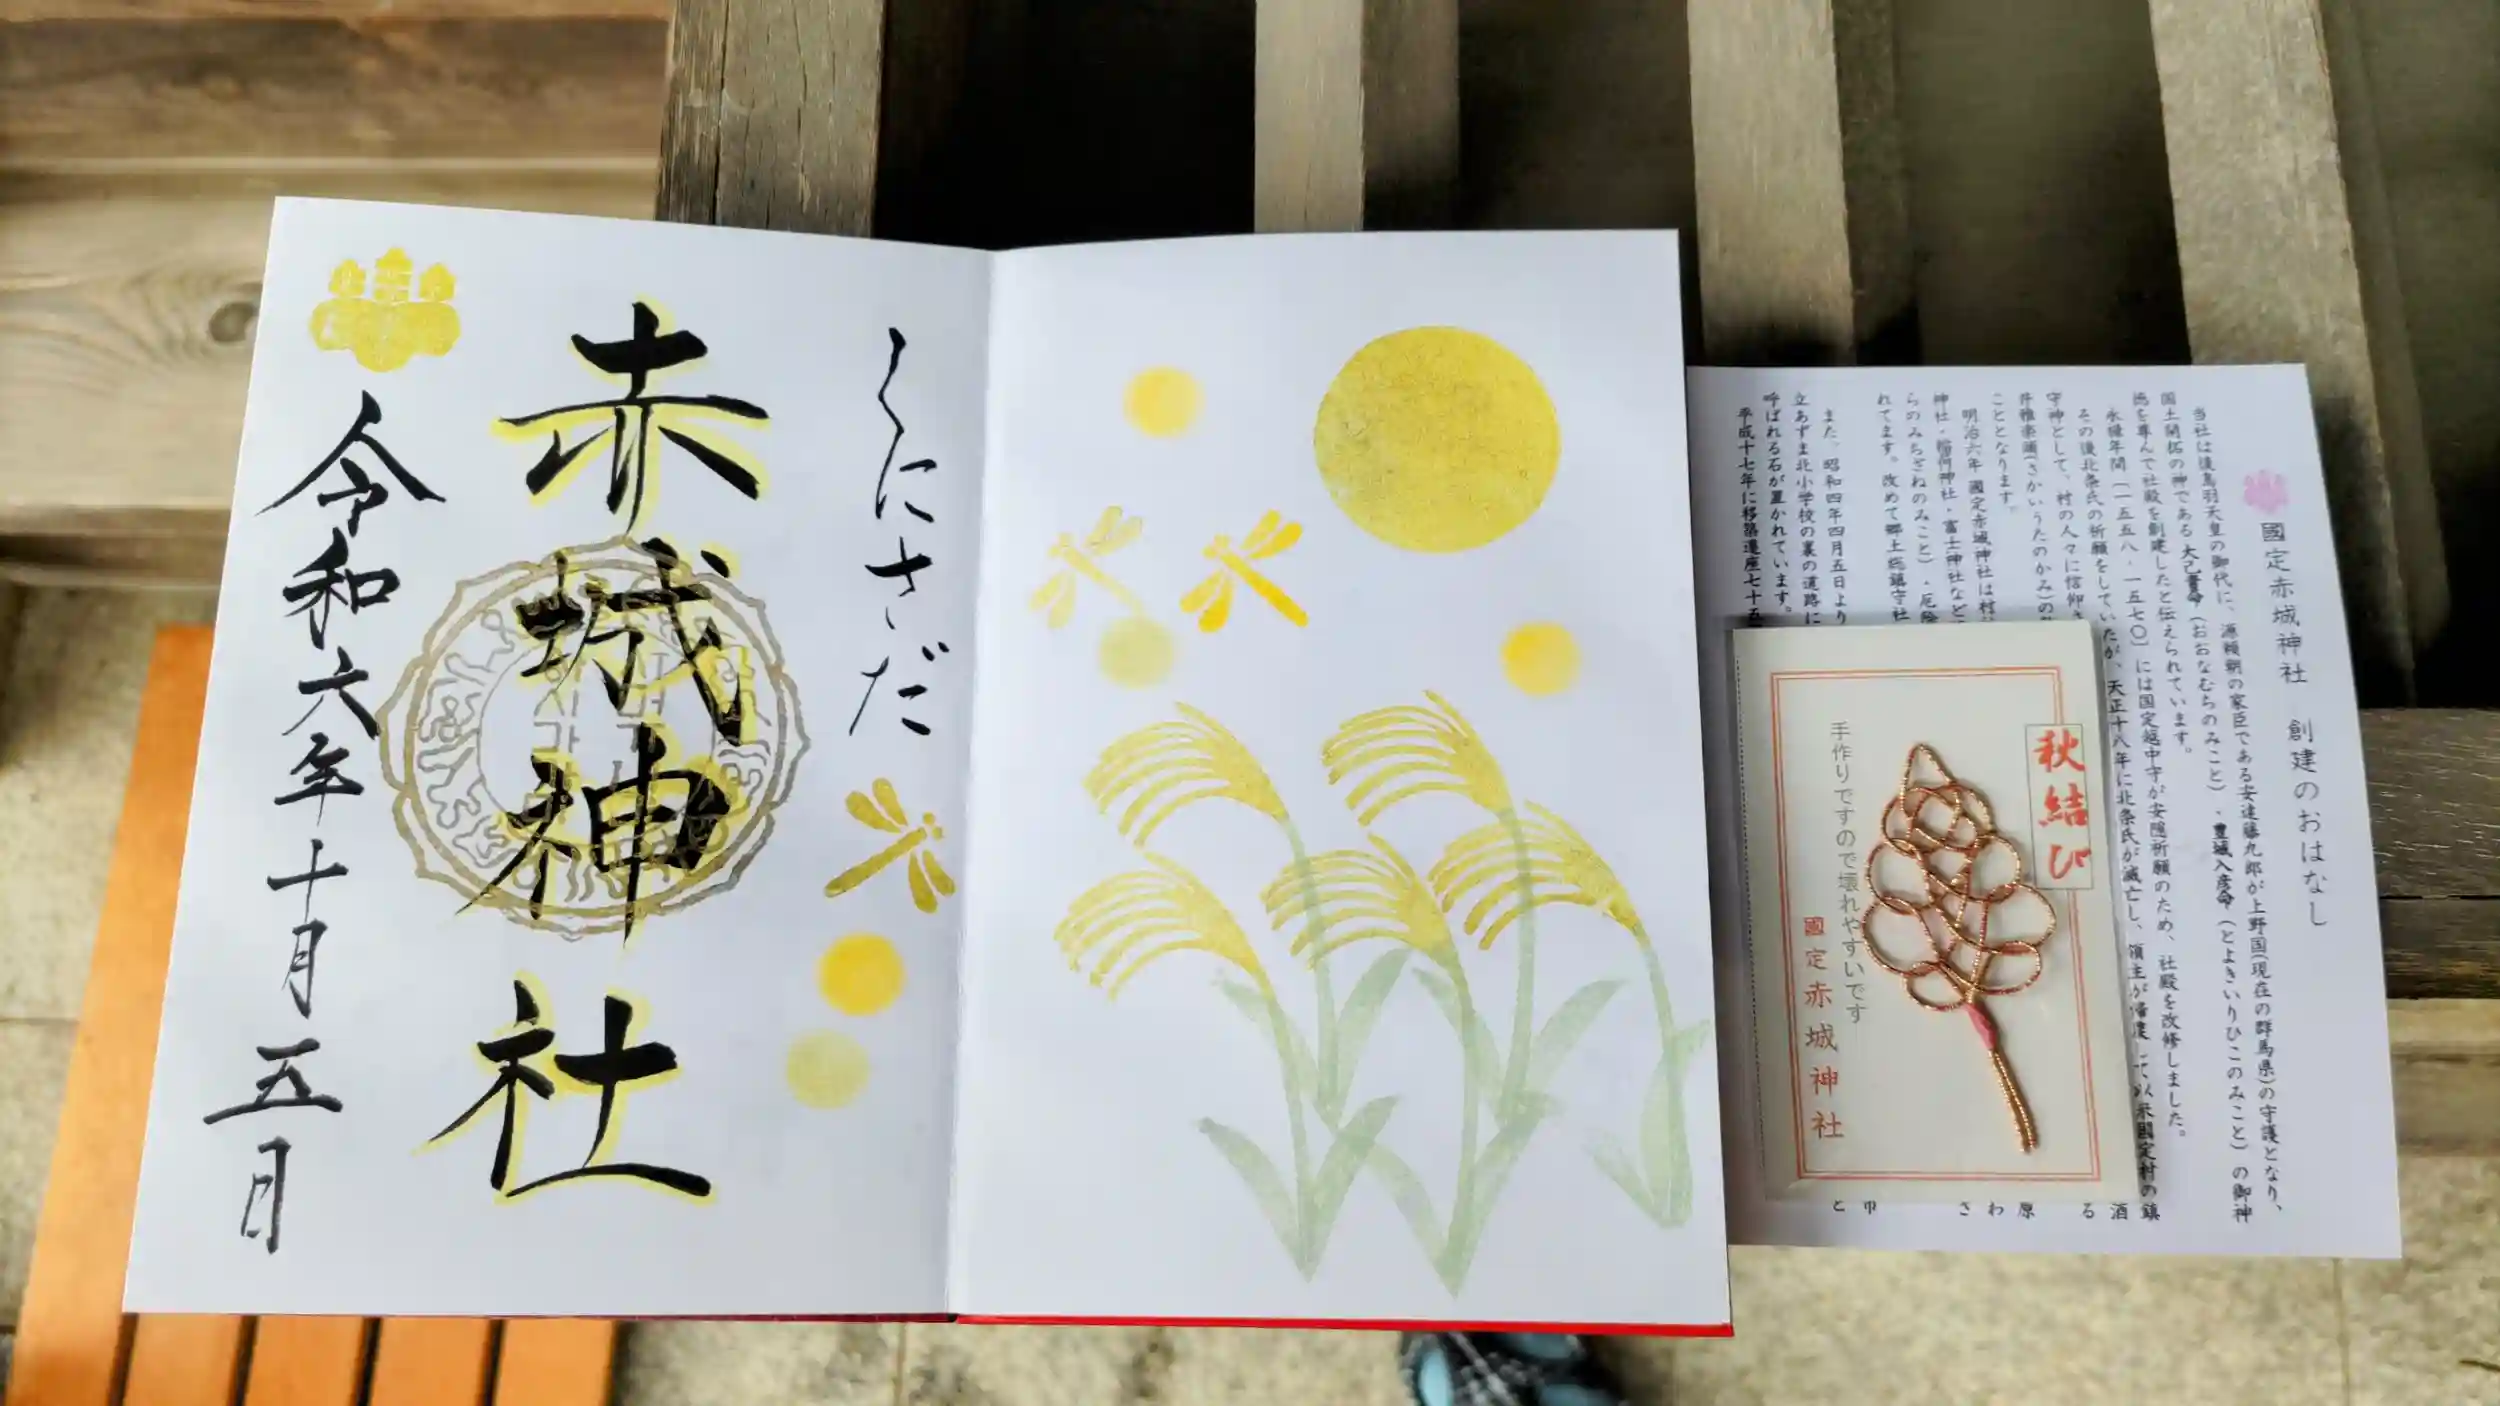 くにさだ
赤城神社
令和六年十月五日
國定赤城神社 創建のおはなし
当社は後鳥羽天皇の御代に、源頼朝の家臣である安達藤九郎が上野国(現在の群馬県)の守護となり、
国土開拓の神である大己貴命(おおなむちのみこと)・豊城入彦命(とよきいりひこのみこと)の御神
徳を尊んで社殿を創建したと伝えられています。
永禄年間(一五五八‐一五七〇)には国定越中守が安隠祈願のため、社殿を改修しました。
その後北条氏の祈願をしていたが、天正十八年に北条氏が滅亡し、領主が
国定村の鎮
守神として、村の人々に信仰
井雅楽頭(さかいうたのかみ)の
こととなります。
明治六年 國定赤城神社は村
神社・稲荷神社・富士神社など
らのみちざねのみこと)・厄除
れてます。改めて郷土総鎮守社
また、昭和四年四月五日より
立あずま北小学校の裏の道路に
呼ばれる石が置かれています。
平成十七年に移築遷座七十五
秋結び
手作りですので壊れやすいです
國定赤城神社